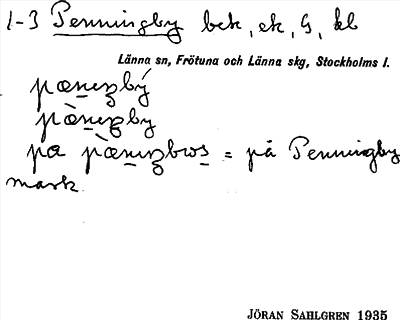 1-3 Penningby bek, ek, G, kl
Länna sn, Frötuna och Länna skg, Stockholms l.
pæniŋbý
pæ̀niŋby
pa pæ̀niŋbros = på Penningby
mark
JÖRAN SAHLGREN 1935